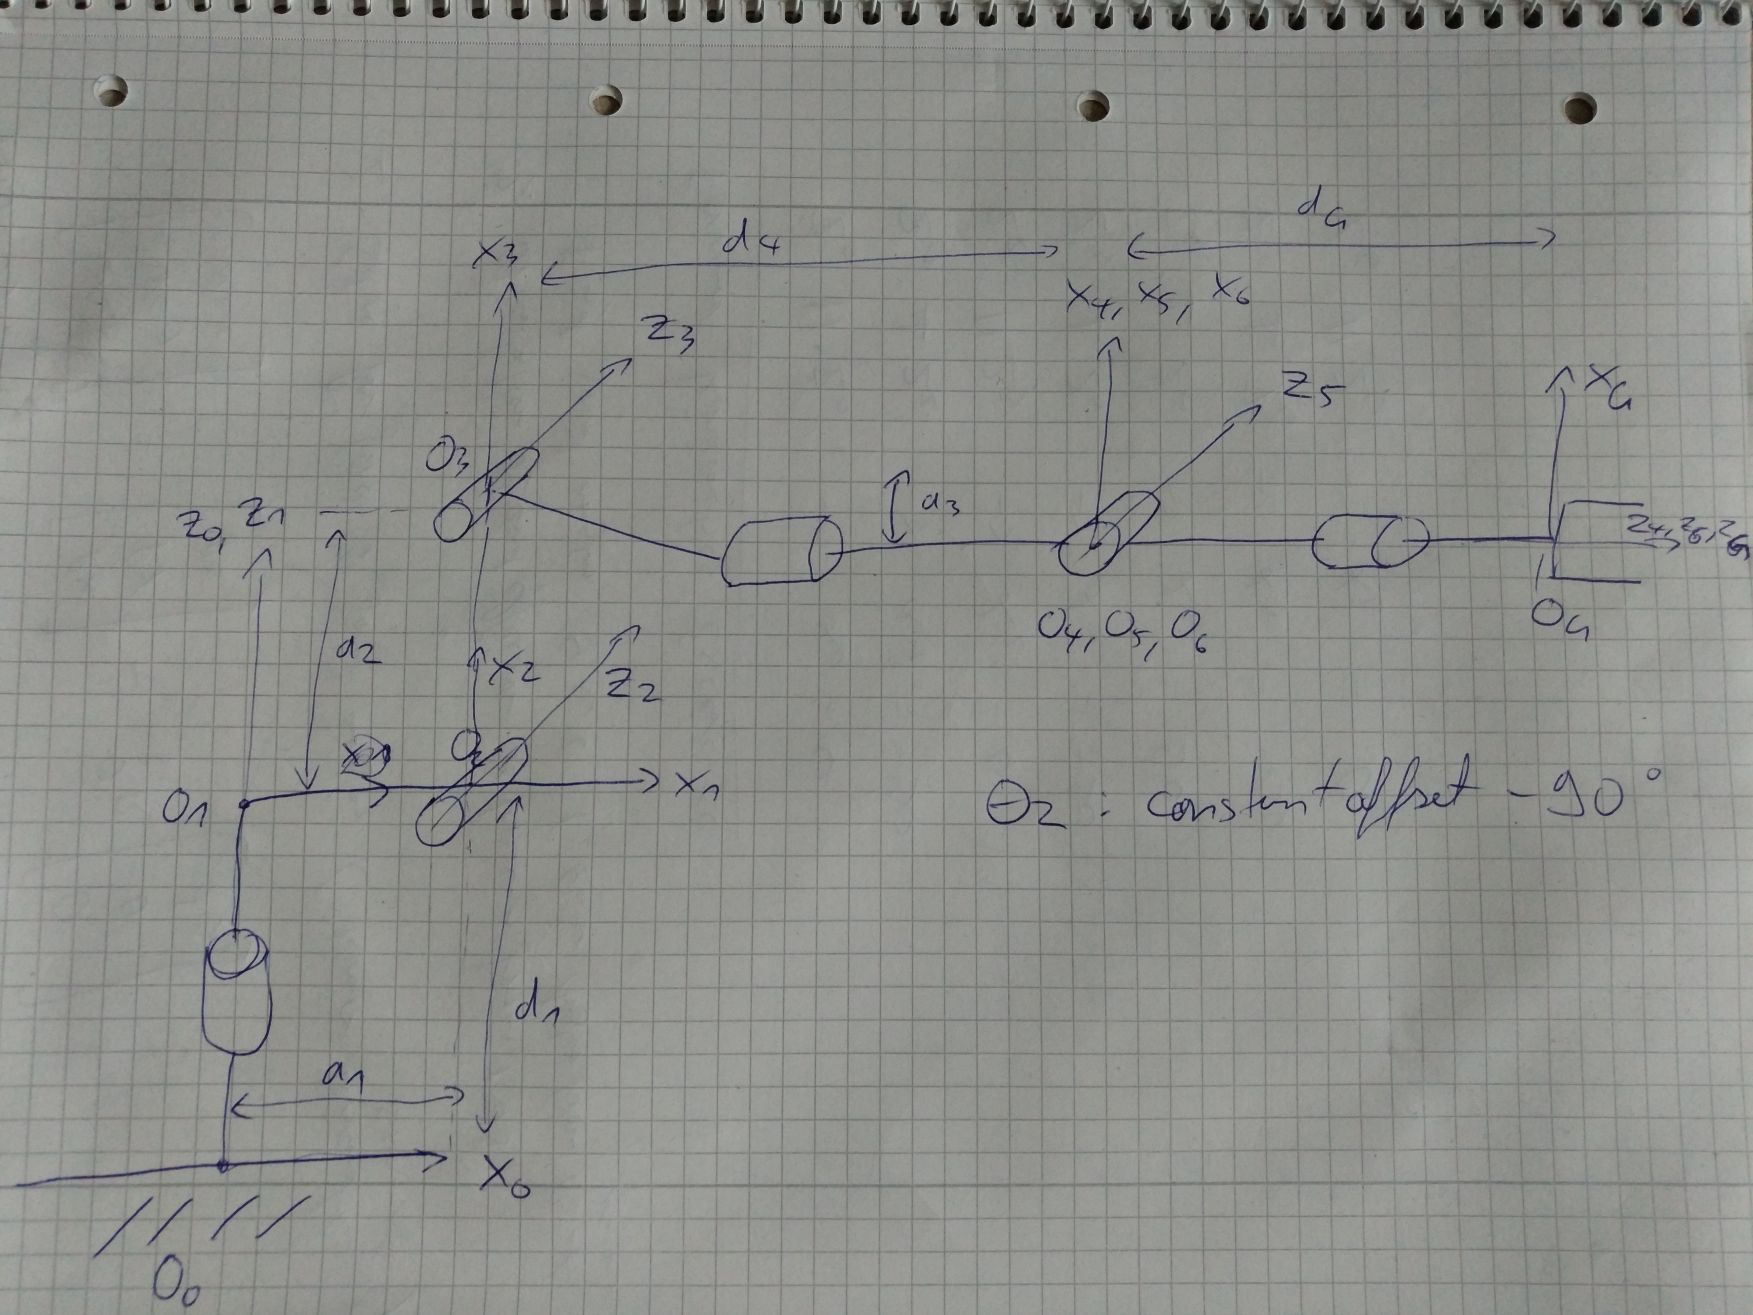 dG
d4
X3
X4, X5, X6
Z3
Z5
XG
O3
a3
Z0, Z1
Z4, Z6, ZG
O4, O5, O6
OG
a2
X2
Z2
O2
O1
X1
θ2 : constant offset - 90°
d1
a1
X0
O0